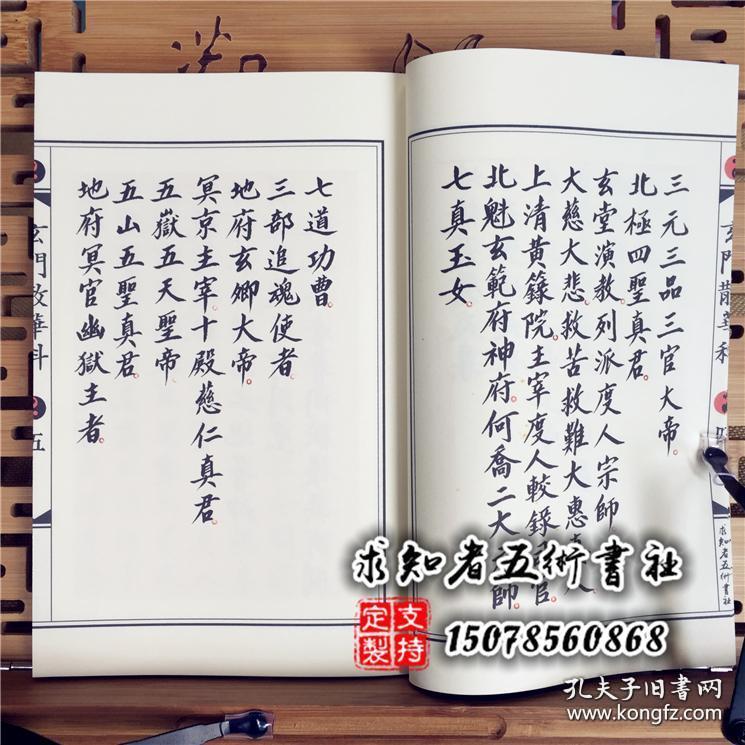 三元三品三官大帝。
北極四聖真君。
玄堂演教列派度人宗師
大慈大悲救苦救難大惠
上清黃籙院主宰度人較錄
官
北魁玄範府神府何喬二大
師。
七真玉女。
玄門散花科
求知者五術書社
七道功曹。
三部追魂使者。
地府玄卿大帝。
冥京主宰十殿慈仁真君。
五嶽五天聖帝
五山五聖真君。
地府冥官幽獄主者。
五
求知者五術書社
支持定製
15078560868
孔夫子旧书网
www.kongfz.com